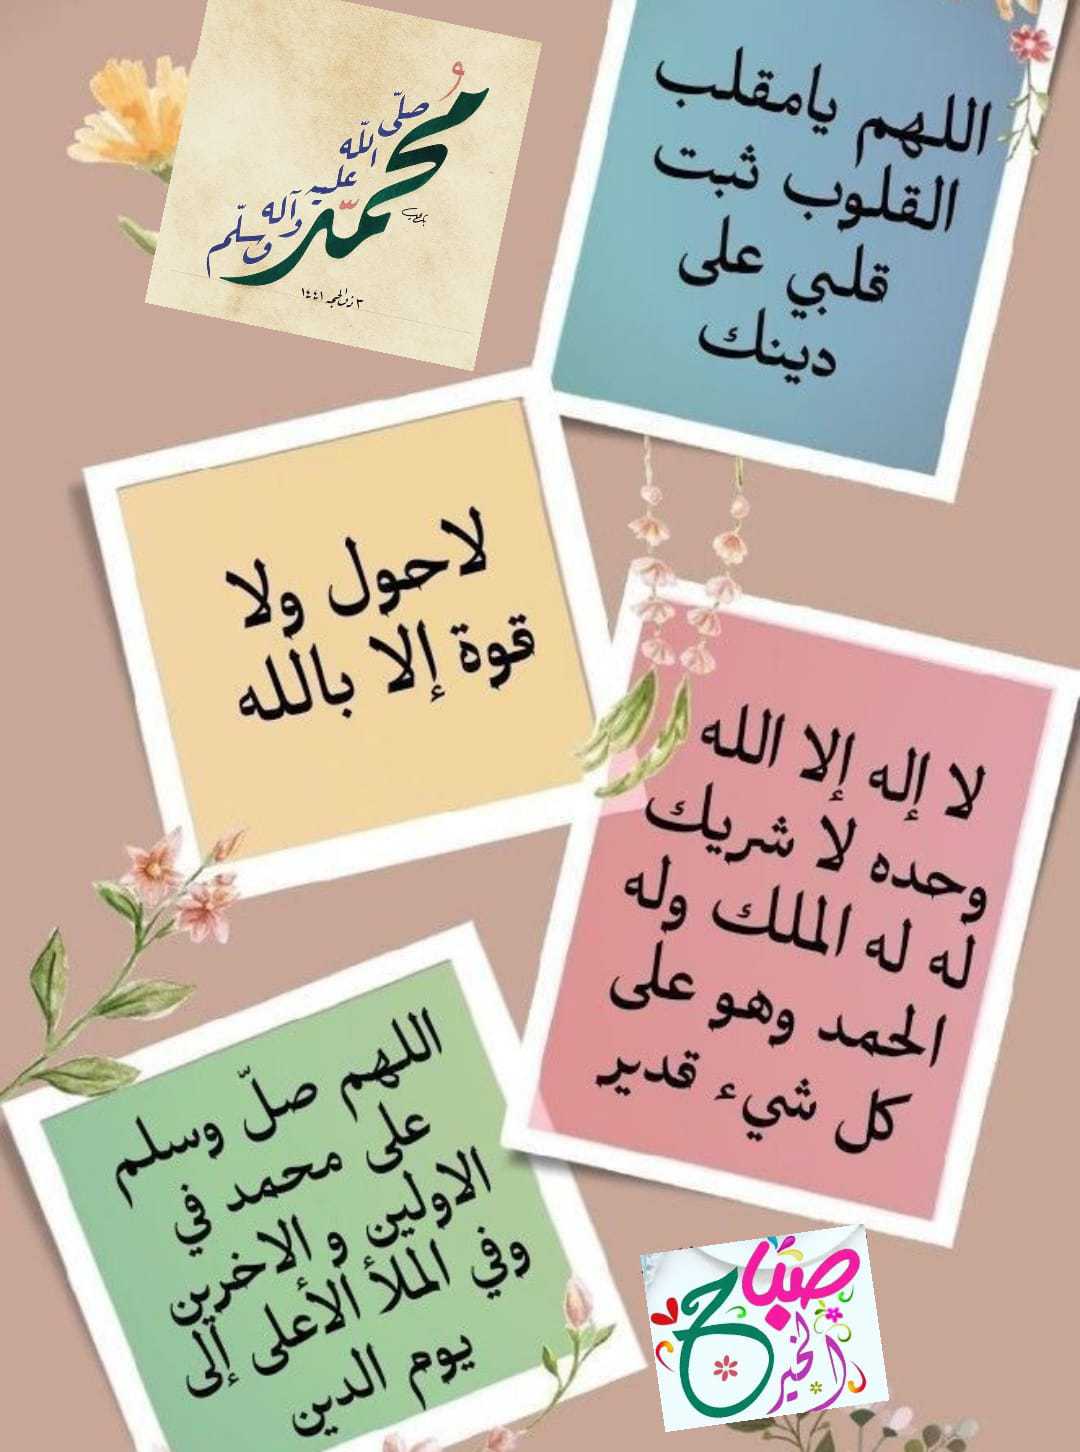 محمد
صلّى
الله
عليه
وآله
وسلّم
٣ ذوالحجه ١٤٤١
اللهم يامقلب
القلوب ثبت
قلبي على
دينك
لاحول ولا
قوة إلا بالله
لا إله إلا الله
وحده لا شريك
له له الملك وله
الحمد وهو على
كل شيء قدير
اللهم صلّ وسلم
على محمد في
الاولين و الاخرين
وفي الملأ الأعلى إلى
يوم الدين
صباح
الخير